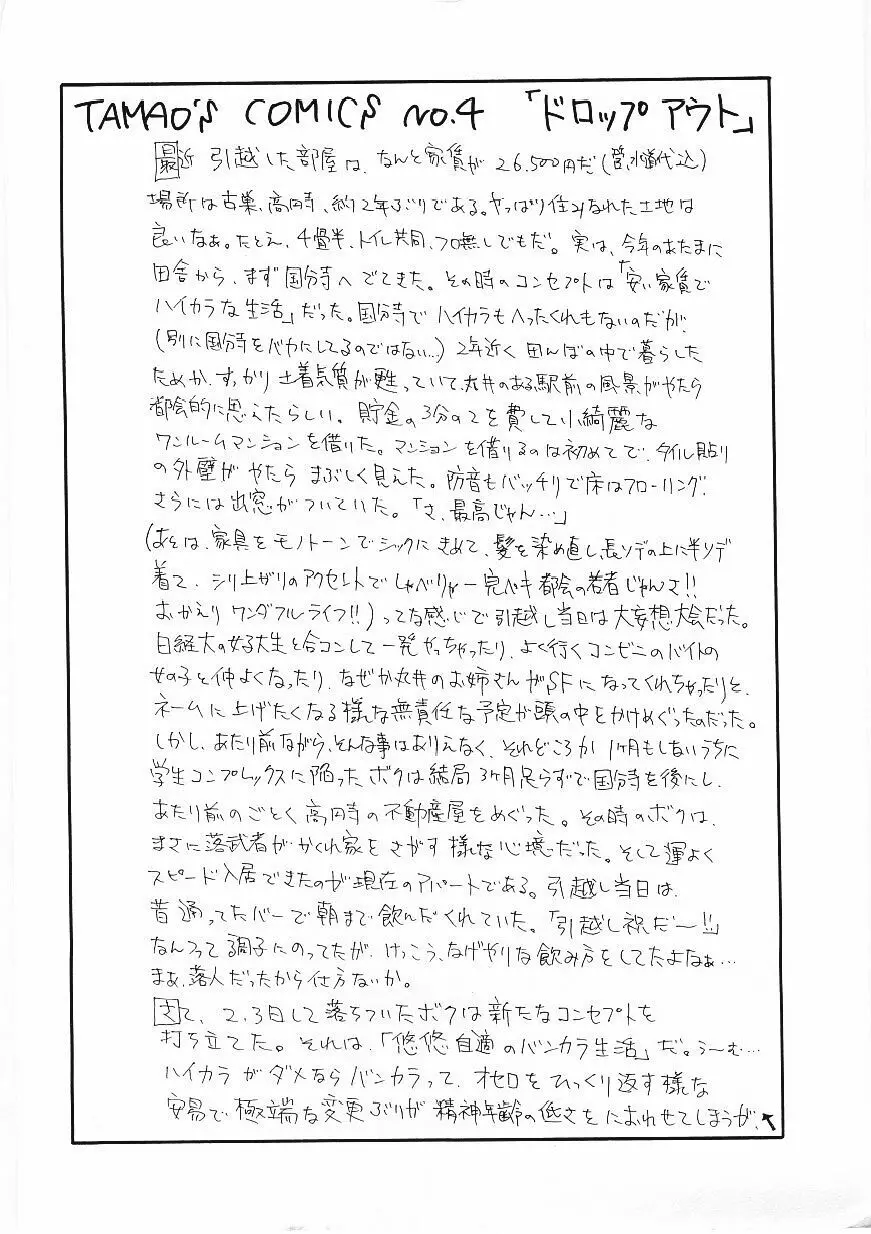 TAMAO'S COMICS NO.4 「ドロップアウト」
最近 引越した部屋は、なんと家賃が 26.500円だ(管、水道代込)
場所は古巣、高円寺、約2年ぶりである。やっぱり住みなれた土地は
良いなぁ。たとえ、4畳半、トイレ共同、フロ無しでもだ。実は、今年のあたまに
田舎から、まず国分寺へでてきた。その時のコンセプトは「安い家賃で
ハイカラな生活」だった。国分寺でハイカラもへったくれもないのだが、
(別に国分寺をバカにしてるのではない…)2年近く田んぼの中で暮らした
ためか、すっかり土着気質が甦っていて、丸井のある駅前の風景がやたら
都会的に思えたらしい。貯金の3分の2を費して小綺麗な
ワンルームマンションを借りた。マンションを借りるのは初めてで、タイル貼り
の外壁がやたらまぶしく見えた。防音もバッチリで床はフローリング、
さらには出窓がついていた。「さ、最高じゃん…」
(あとは、家具をモノトーンでシックにきめて、髪を染め直し、長ソデの上に半ソデ
着て、シリ上がりのアクセントでしゃべりゃー完ペキ都会の若者じゃんさ!!
おかえりワンダフルライフ!!)ってな感じで引越し当日は大妄想大会だった。
日経大の女子大生と合コンして一発やっちゃったり、よく行くコンビニのバイトの
女の子と仲よくなったり、なぜか丸井のお姉さんがSFになってくれちゃったりと、
ネームに上げたくなる様な無責任な予定が頭の中をかけめぐったのだった。
しかし、あたり前ながら、そんな事はありえなく、それどころか1ヶ月もしないうちに
学生コンプレックスに陥ったボクは結局3ヶ月足らずで国分寺を後にし、
あたり前のごとく高円寺の不動産屋をめぐった。その時のボクは、
まさに落武者がかくれ家をさがす様な心境だった。そして運よく
スピード入居できたのが現在のアパートである。引越し当日は、
昔通ってたバーで朝まで飲んだくれていた。「引越し祝だ〜!!」
なんつって調子にのってたが、けっこう、なげやりな飲み方をしてたよなぁ…
まぁ、落人だったから仕方ないか。
さて、2、3日して落ちついたボクは新たなコンセプトを
打ち立てた。それは、「悠悠自適のバンカラ生活」だ。う〜む…
ハイカラがダメならバンカラって、オセロをひっくり返す様な
安易で極端な変更ぶりが精神年齢の低さをにおわせてしまうが、